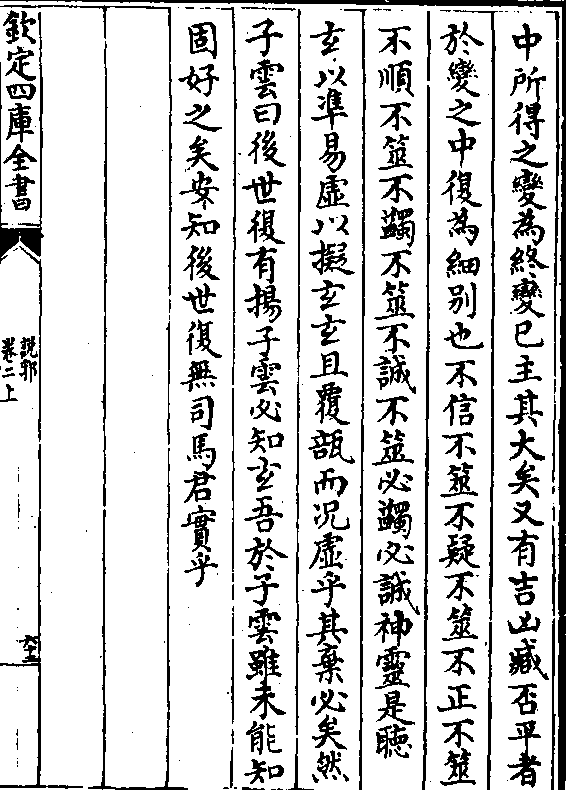 中所得之變為終變已主其大矣又有吉凶臧否平者
於變之中復為細别也不信不筮不疑不筮不正不筮
不順不筮不蠲不筮不誠不筮必蠲必誠神靈是聽
玄以凖易虚以擬玄玄且覆瓿而况虚乎其棄必矣然
子雲曰後世復有揚子雲必知玄吾於子雲雖未能知
固好之矣安知後世復無司馬君實乎
欽定四庫全書
說郛
卷二上